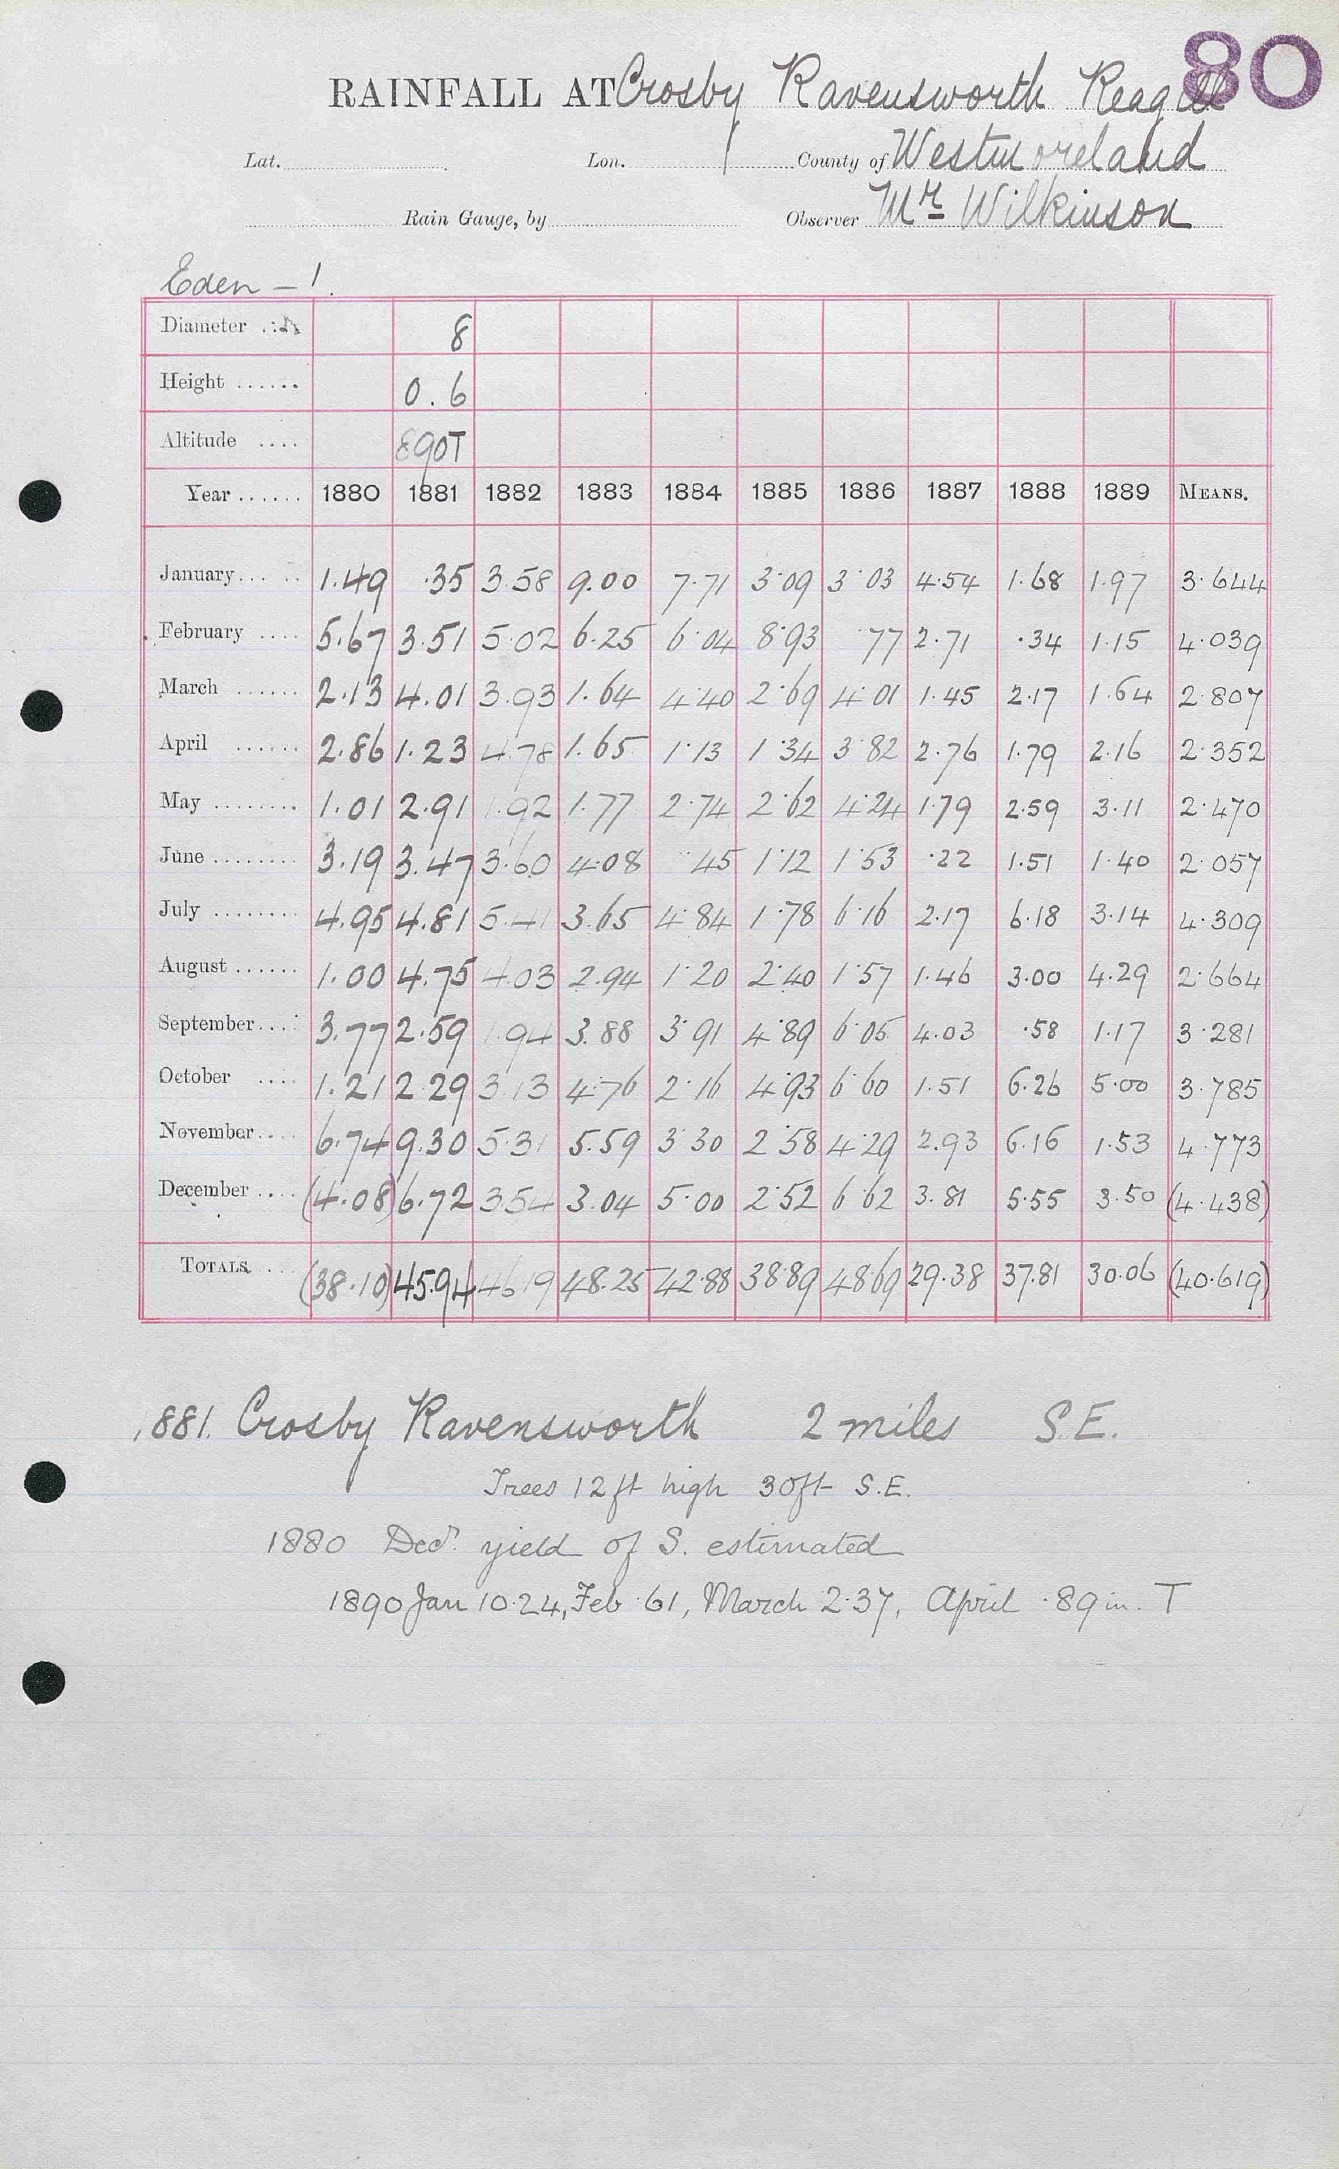 80
RAINFALL AT Crosby Ravensworth Reagill
Lat. Lon. County of Westmoreland
Rain Gauge, by Observer Mr Wilkinson
Eden - 1.
Diameter 8
Height ...... 0.6
Altitude .... 890T
Year ...... 1880 1881 1882 1883 1884 1885 1886 1887 1888 1889 MEANS.
January ... 1.49 .35 3.58 9.00 7.71 3.09 3.03 4.54 1.68 1.97 3.644
February .... 5.67 3.51 5.02 6.25 6.04 8.93 .77 2.71 .34 1.15 4.039
March ...... 2.13 4.01 3.93 1.64 4.40 2.69 4.01 1.45 2.17 1.64 2.807
April ...... 2.86 1.23 4.78 1.65 1.13 1.34 3.82 2.76 1.79 2.16 2.352
May ........ 1.01 2.91 1.92 1.77 2.74 2.62 4.24 1.79 2.59 3.11 2.470
June ........ 3.19 3.47 3.60 4.08 .45 1.12 1.53 .22 1.51 1.40 2.057
July ........ 4.95 4.81 5.41 3.65 4.84 1.78 6.16 2.17 6.18 3.14 4.309
August ...... 1.00 4.75 4.03 2.94 1.20 2.40 1.57 1.46 3.00 4.29 2.664
September .... 3.77 2.59 1.94 3.88 3.91 4.89 6.05 4.03 .58 1.17 3.281
October .... 1.21 2.29 3.13 4.76 2.16 4.93 6.60 1.51 6.26 5.00 3.785
November .... 6.74 9.30 5.31 5.59 3.30 2.58 4.29 2.93 6.16 1.53 4.773
December .... (4.08) 6.72 3.54 3.04 5.00 2.52 6.62 3.81 5.55 3.50 (4.438)
TOTALS ... (38.10) 45.94 46.19 48.25 42.88 38.89 48.69 29.38 37.81 30.06 (40.619)
1881. Crosby Ravensworth 2 miles S.E.
Trees 12ft high 30ft S.E.
1880 Decr. yield of S. estimated
1890 Jan 10.24, Feb .61, March 2.37, April .89 in. T